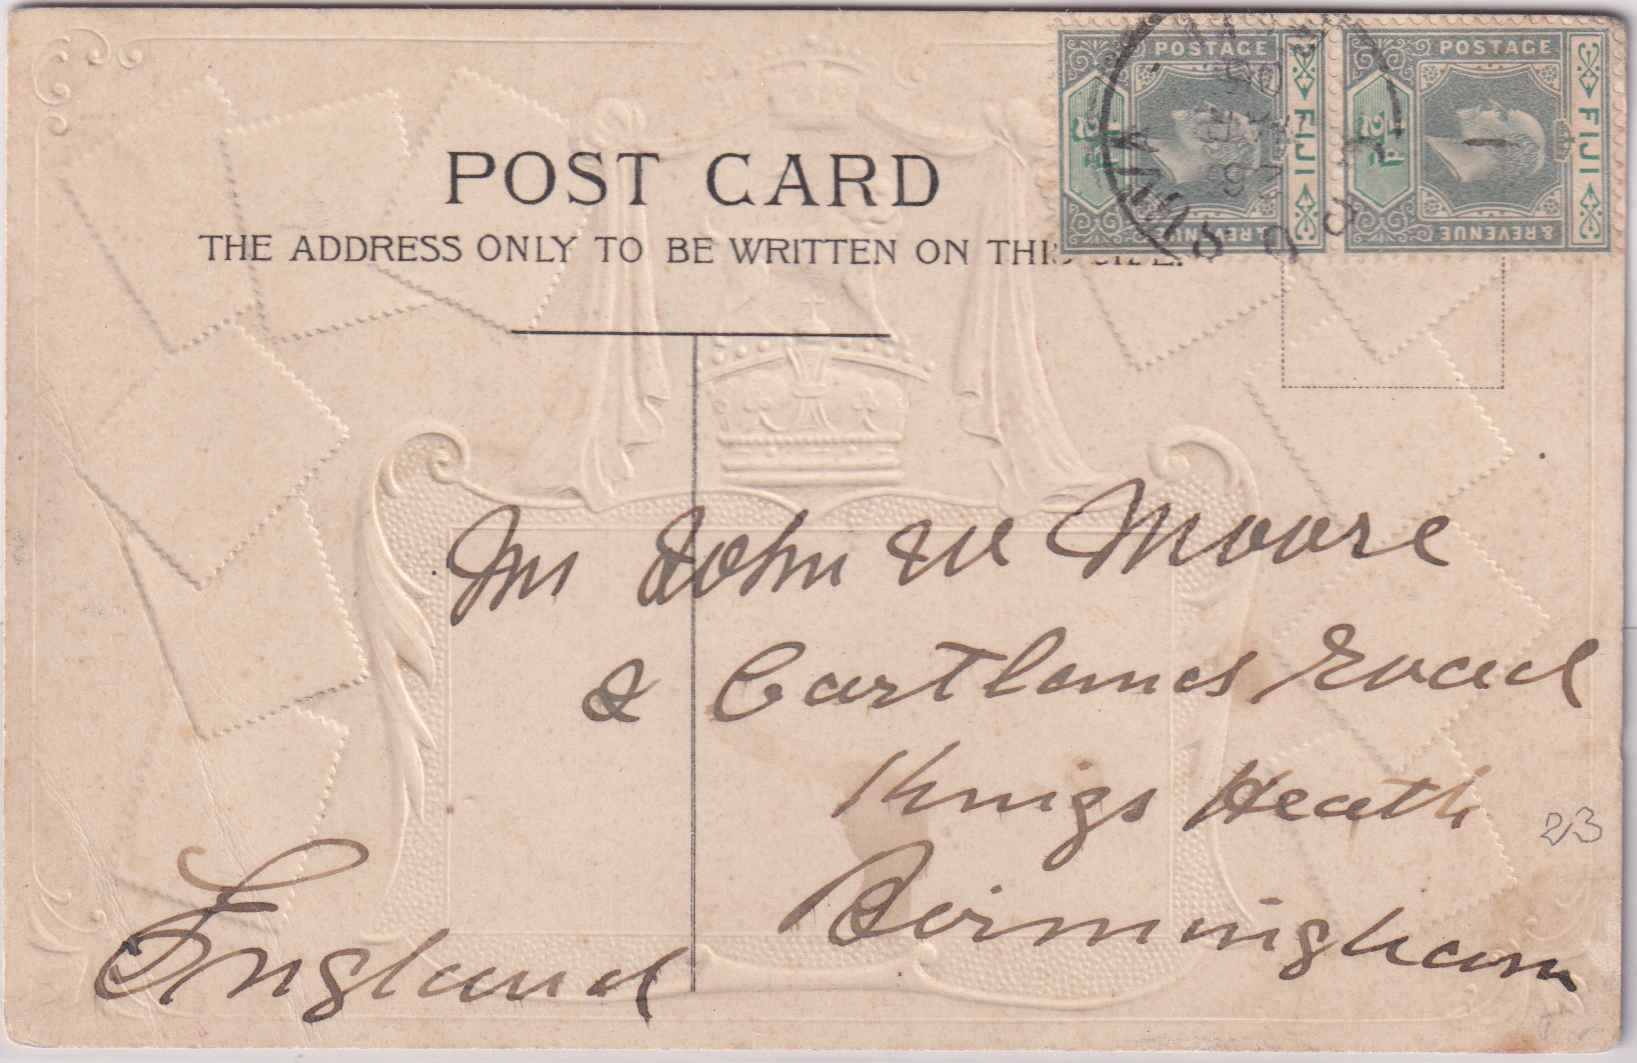 POST CARD
THE ADDRESS ONLY TO BE WRITTEN ON THIS SIDE.
POSTAGE
& REVENUE
FIJI
½d
POSTAGE
& REVENUE
FIJI
½d
SUVA
G.P.O
Mr John W Moore
Cartlands Road
Kings Heath
Birmingham
England
23